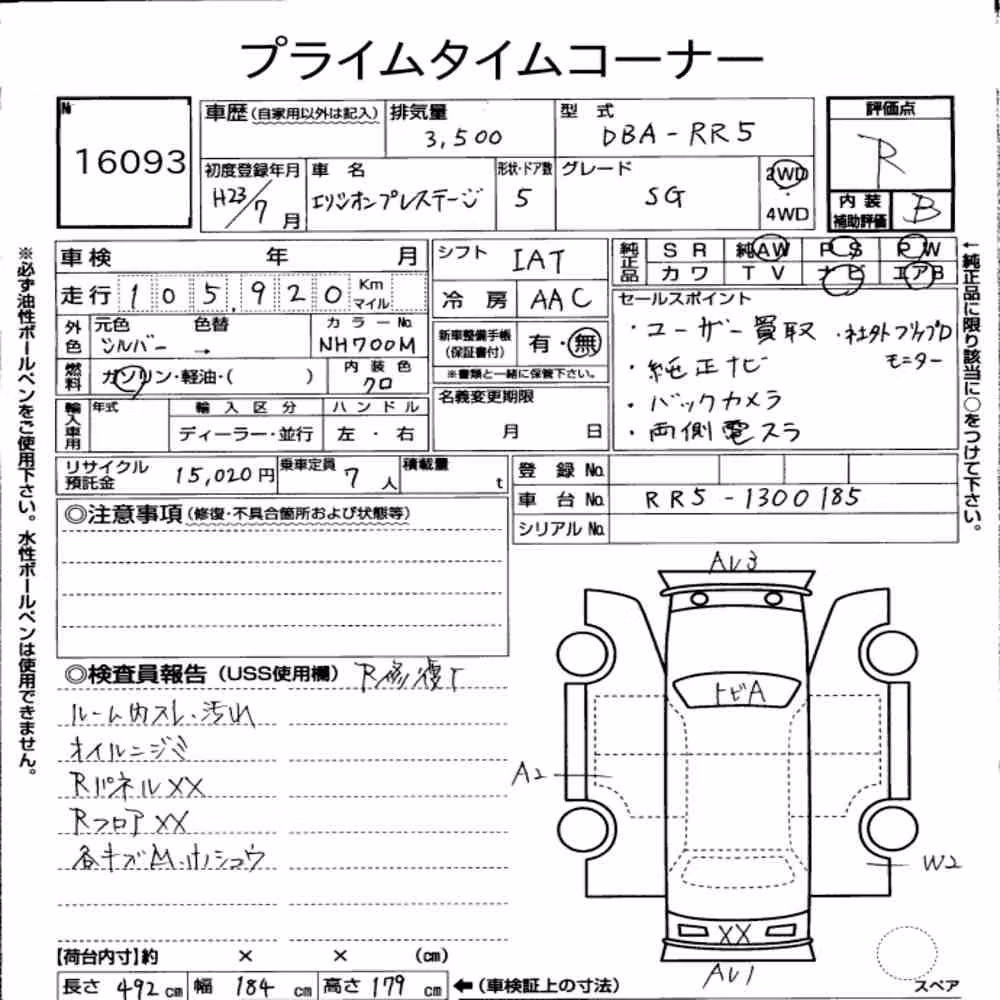 プライムタイムコーナー
№ 16093
車歴(自家用以外は記入) 排気量 3,500 型式 DBA-RR5 評価点 R
初度登録年月 H23/7月 車名 エリシオンプレステージ 形状・ドア数 5 グレード SG 2WD・4WD 内装補助評価 B
車検 年 月 シフト IAT 純正品 SR 純AW PS PW
カワ TV ナビ エアB
走行 105,920 Km マイル 冷房 AAC
セールスポイント
・ユーザー買取 ・社外フリップD
モニター
・純正ナビ
・バックカメラ
・両側電スラ
外色 元色 シルバー 色替 → カラーNo. NH700M
新車整備手帳(保証書付) 有・無
※書類と一緒に保管下さい。
燃料 ガソリン・軽油・( ) 内装色 クロ
名義変更期限 月 日
輸入車用 年式 輸入区分 ディーラー・並行 ハンドル 左・右
リサイクル預託金 15,020円 乗車定員 7人 積載量 t
登録No.
車台No. RR5-1300185
シリアルNo.
◎注意事項(修復・不具合箇所および状態等)
◎検査員報告(USS使用欄) R修復歴
ルーム内スレ・汚れ
オイルニジミ
RパネルXX
RフロアXX
各キズ
【荷台内寸】約 × × (cm)
長さ 492cm 幅 184cm 高さ 179cm ←(車検証上の寸法)
AU3
トビA
A2
W2
XX
AU1
スペア
※必ず油性ボールペンをご使用下さい。水性ボールペンは使用できません。
←純正品に限り該当に○をつけて下さい。